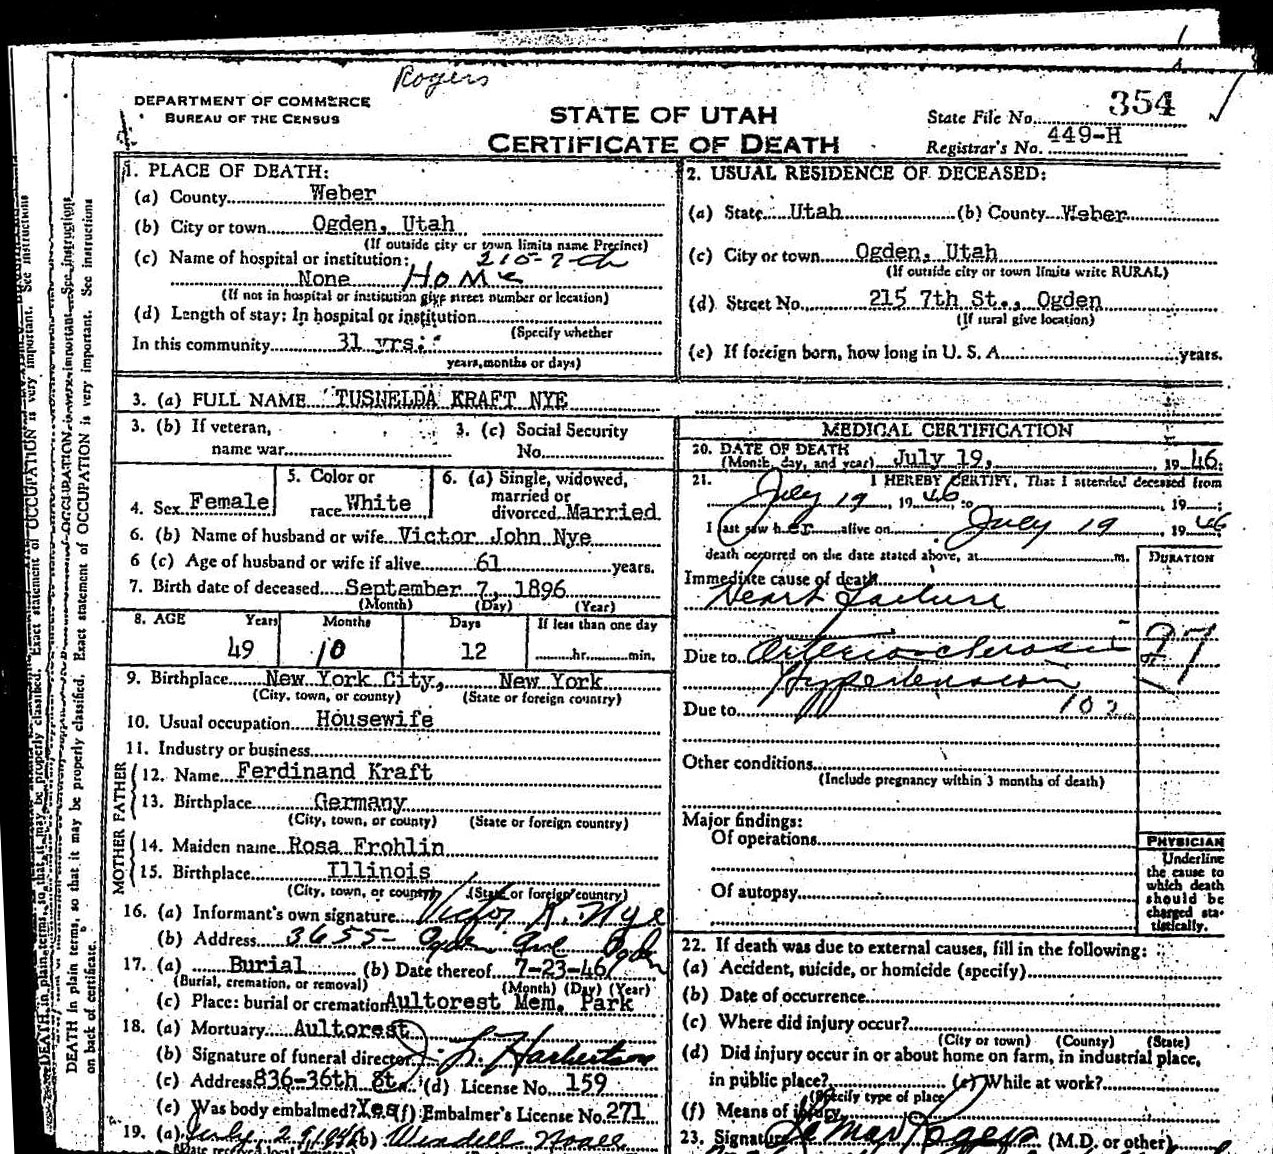 Rogers
DEPARTMENT OF COMMERCE
BUREAU OF THE CENSUS
STATE OF UTAH
CERTIFICATE OF DEATH
State File No. 354
Registrar's No. 449-H
1. PLACE OF DEATH:
(a) County Weber
(b) City or town Ogden, Utah
(If outside city or town limits name Precinct)
(c) Name of hospital or institution: 215-7-th
None Home
(If not in hospital or institution give street number or location)
(d) Length of stay: In hospital or institution
(Specify whether
In this community 31 yrs.
years, months or days)
2. USUAL RESIDENCE OF DECEASED:
(a) State Utah (b) County Weber
(c) City or town Ogden, Utah
(If outside city or town limits write RURAL)
(d) Street No. 215 7th St., Ogden
(If rural give location)
(e) If foreign born, how long in U. S. A. years.
3. (a) FULL NAME TUSNELDA KRAFT NYE
3. (b) If veteran,
name war
3. (c) Social Security
No.
4. Sex Female
5. Color or
race White
6. (a) Single, widowed,
married or
divorced Married
6. (b) Name of husband or wife Victor John Nye
6 (c) Age of husband or wife if alive 61 years.
7. Birth date of deceased September 7, 1896
(Month) (Day) (Year)
8. AGE Years Months Days If less than one day
49 10 12 hr. min.
9. Birthplace New York City, New York
(City, town, or county) (State or foreign country)
10. Usual occupation Housewife
11. Industry or business
FATHER
12. Name Ferdinand Kraft
13. Birthplace Germany
(City, town, or county) (State or foreign country)
MOTHER
14. Maiden name Rosa Frohlin
15. Birthplace Illinois
(City, town, or county) (State or foreign country)
16. (a) Informant's own signature Victor K. Nye
(b) Address 3655- Ogden Ave Ogden
17. (a) Burial (b) Date thereof 7-23-46
(Burial, cremation, or removal) (Month) (Day) (Year)
(c) Place: burial or cremation Aultorest Mem. Park
18. (a) Mortuary Aultorest
(b) Signature of funeral director J. L. Harbertson
(c) Address 836-36th St. (d) License No. 159
(e) Was body embalmed? Yes (f) Embalmer's License No. 271
19. (a) July 29 1946 (b) Wendell Noall
MEDICAL CERTIFICATION
20. DATE OF DEATH
(Month, day, and year) July 19, 19 46.
21. I HEREBY CERTIFY, That I attended deceased from
July 19, 19 46, to , 19
I last saw her alive on July 19 19 46
death occurred on the date stated above, at m.
DURATION
Immediate cause of death
Heart failure
Due to Arteriosclerosis
Hypertension
Due to 102
97
Other conditions
(Include pregnancy within 3 months of death)
Major findings:
Of operations
Of autopsy
PHYSICIAN
Underline
the cause to
which death
should be
charged sta-
tistically.
22. If death was due to external causes, fill in the following:
(a) Accident, suicide, or homicide (specify)
(b) Date of occurrence
(c) Where did injury occur?
(City or town) (County) (State)
(d) Did injury occur in or about home on farm, in industrial place,
in public place? (e) While at work?
(Specify type of place)
(f) Means of injury
23. Signature (M.D. or other)
DEATH in plain terms, so that it may be properly classified. Exact statement of OCCUPATION is very important. See instructions
on back of certificate.